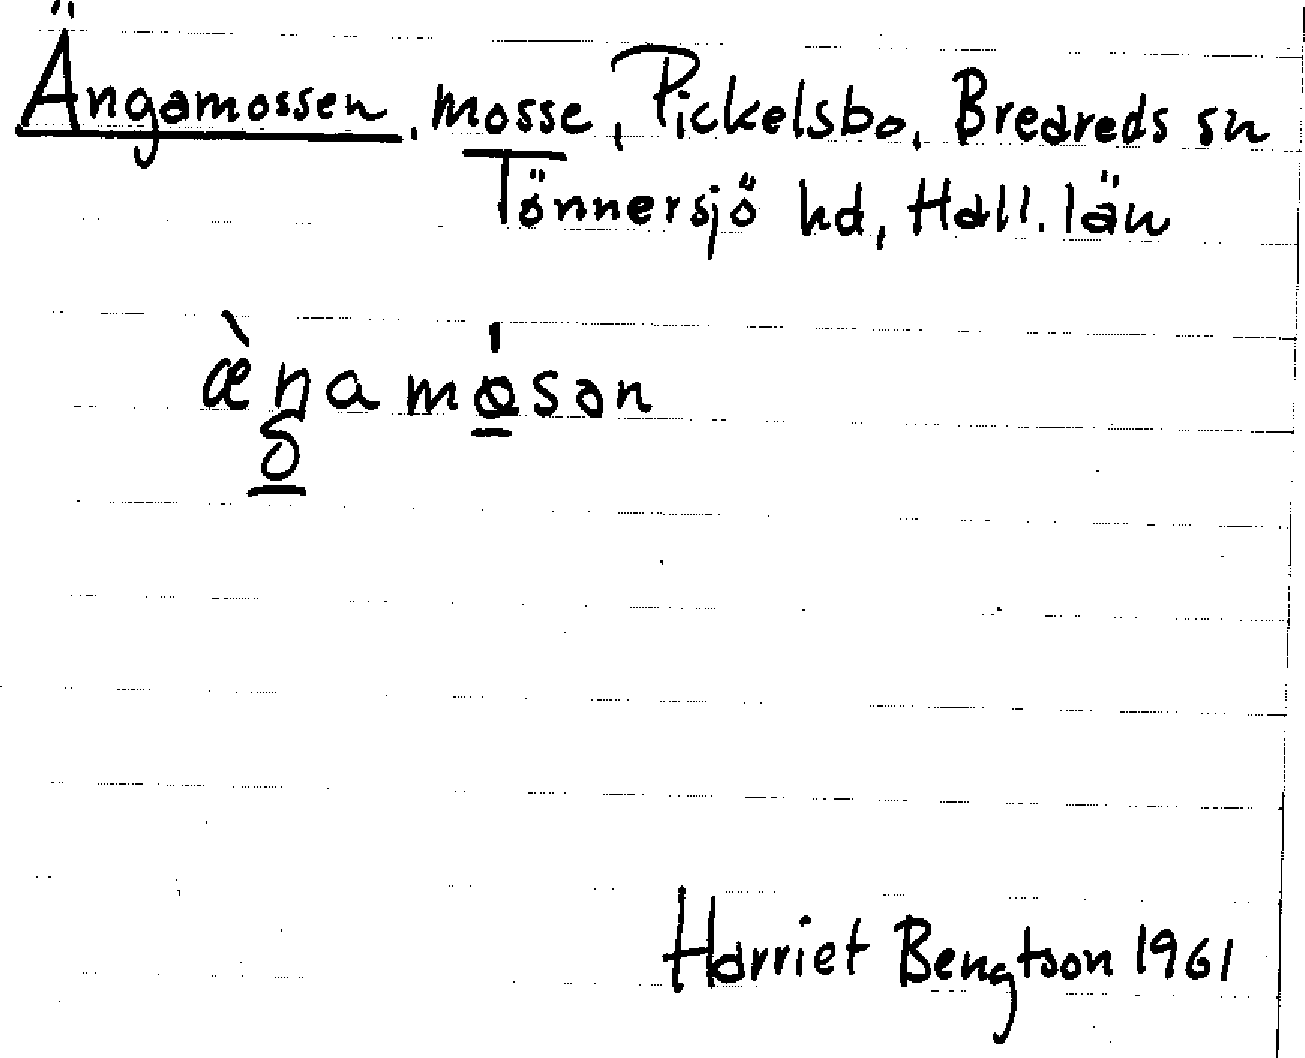 Ängamossen, mosse, Pickelsbo, Breareds sn
Tönnersjö hd, Hall. län
æ̀ŋamo̱̍sən
Harriet Bengtson 1961